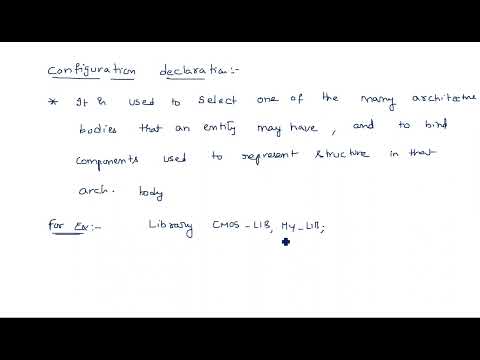 Configuration declaration:-
* It is used to select one of the many architecture
bodies that an entity may have, and to bind
components used to represent structure in that
arch. body
For Ex:- Library CMOS_LIB, MY_LIB;